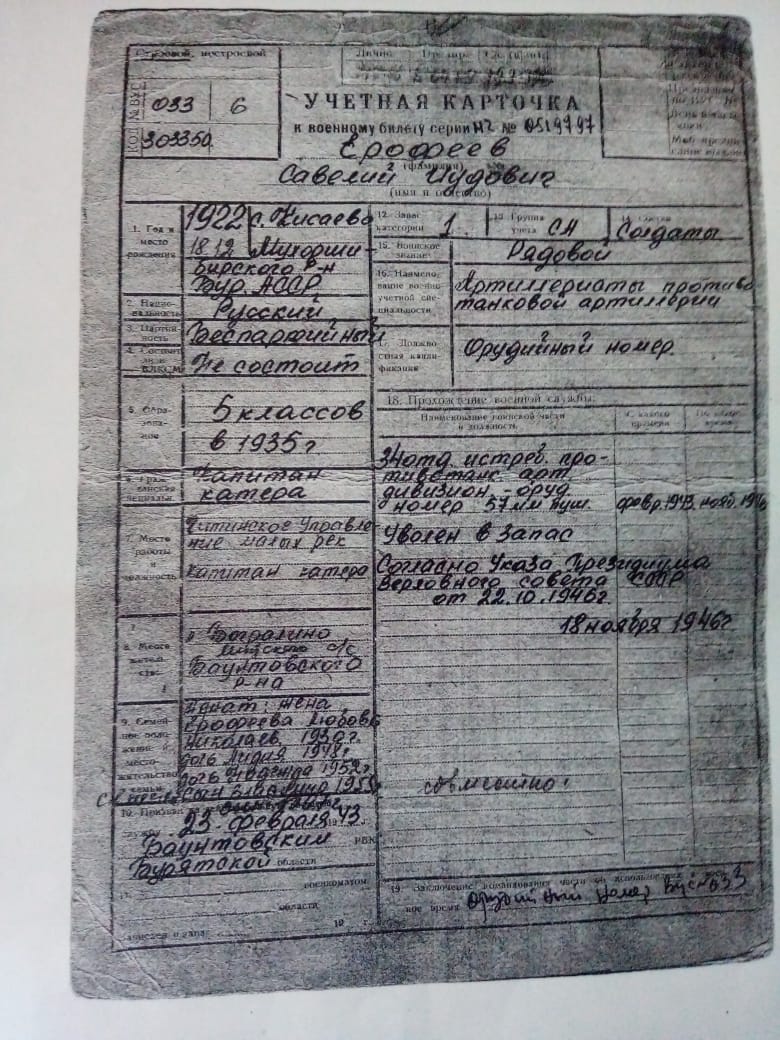 033 6
№ ВУС
КОД
303350.
УЧЕТНАЯ КАРТОЧКА
к военному билету серии НГ № 0519797
Ерофеев
(фамилия)
Савелий Иудович
(имя и отчество)
1. Год и место рождения
1922 с. Хисаево
18.12 Мухорши-
бирского р-н
Бур. АССР
2. Нацио-
нальность
Русский
3. Партий-
ность
Беспартийный
ВЛКСМ
Не состоит
5. Обра-
зова-
ние
5 классов
в 1935 г
Капитан
катера
7. Место
работы
и
должность
Читинское Управле
ние малых рек
Капитан катера
8. Место
жительс-
тва
Баунтовского
р-на
9. Семей-
ное поло-
жение и
место-
жительство
семьи
Женат: жена
Ерофеева Любовь
Николаев. 1930 г.
дочь Лидия
дочь Надежда 1952 г
сын
совместно.
23 февраля 1943.
Баунтовским РВК
Бурятской области
военкоматом
области
19 г.
12. Запас
категории
1.
13. Группа
учета
СА
14. Состав
Солдаты
15. Воинское
звание
Рядовой
16. Наимено-
вание военно-
учетной спе-
циальности
Артиллеристы противо
танковой артиллерии
17. Долж-
ностная квали-
фикация
Орудийный номер.
18. Прохождение военной службы
Наименование воинской части
и должность
С какого
времени
По какое
время
34 отд. истреб. про-
тивотанк. арт.
дивизион - оруд.
номер 57 мм пуш.
февр. 1943. нояб. 1946
Уволен в запас
Согласно Указа Президиума
Верховного совета СССР
от 22.10.1946 г.
18 ноября 1946 г
19. Заключение командования части об использовании
ное время Орудийный номер ВУС № 033